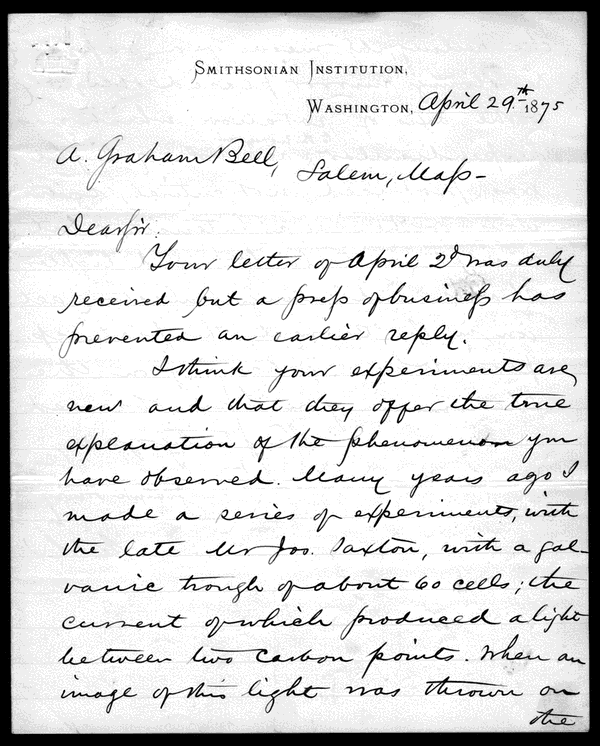 SMITHSONIAN INSTITUTION,
WASHINGTON, April 29th 1875
A. Graham Bell,
Salem, Mass-
Dear Sir:
Your letter of April 2d was duly
received but a press of business has
prevented an earlier reply.
I think your experiments are
new and that they offer the true
explanation of the phenomenon you
have observed. Many years ago I
made a series of experiments, with
the late Mr Jos. Saxton, with a gal-
vanic trough of about 60 cells; the
current of which produced a light
between two carbon points. When an
image of this light was thrown on
the